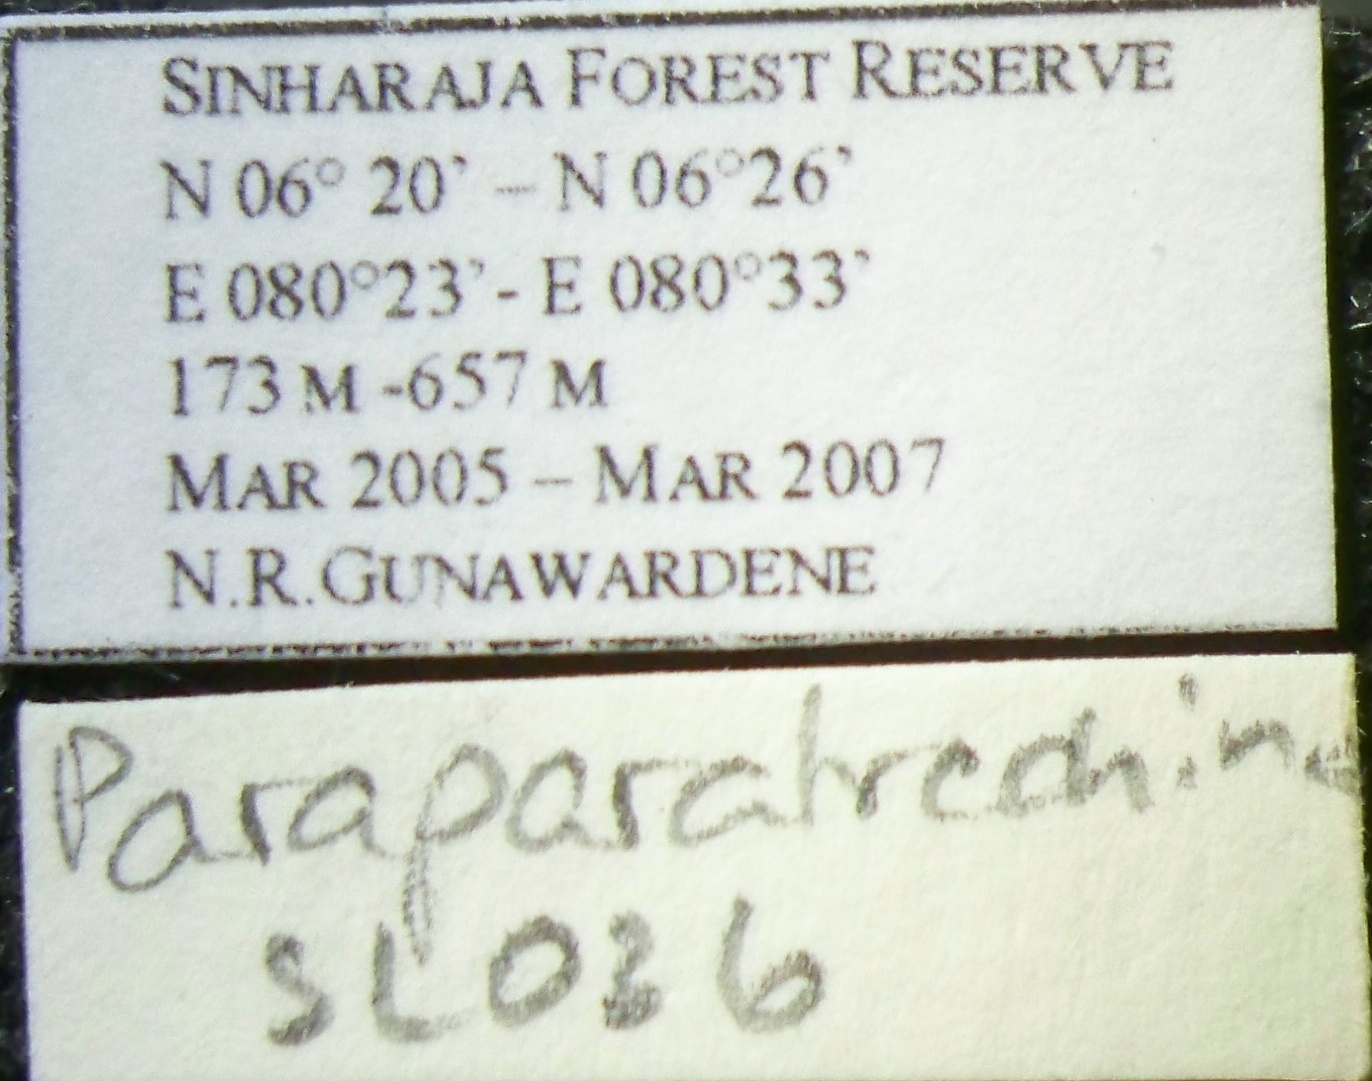 SINHARAJA FOREST RESERVE
N 06° 20’ – N 06°26’
E 080°23’ - E 080°33’
173 M -657 M
MAR 2005 – MAR 2007
N.R.GUNAWARDENE
Paraparatrechina
SL036